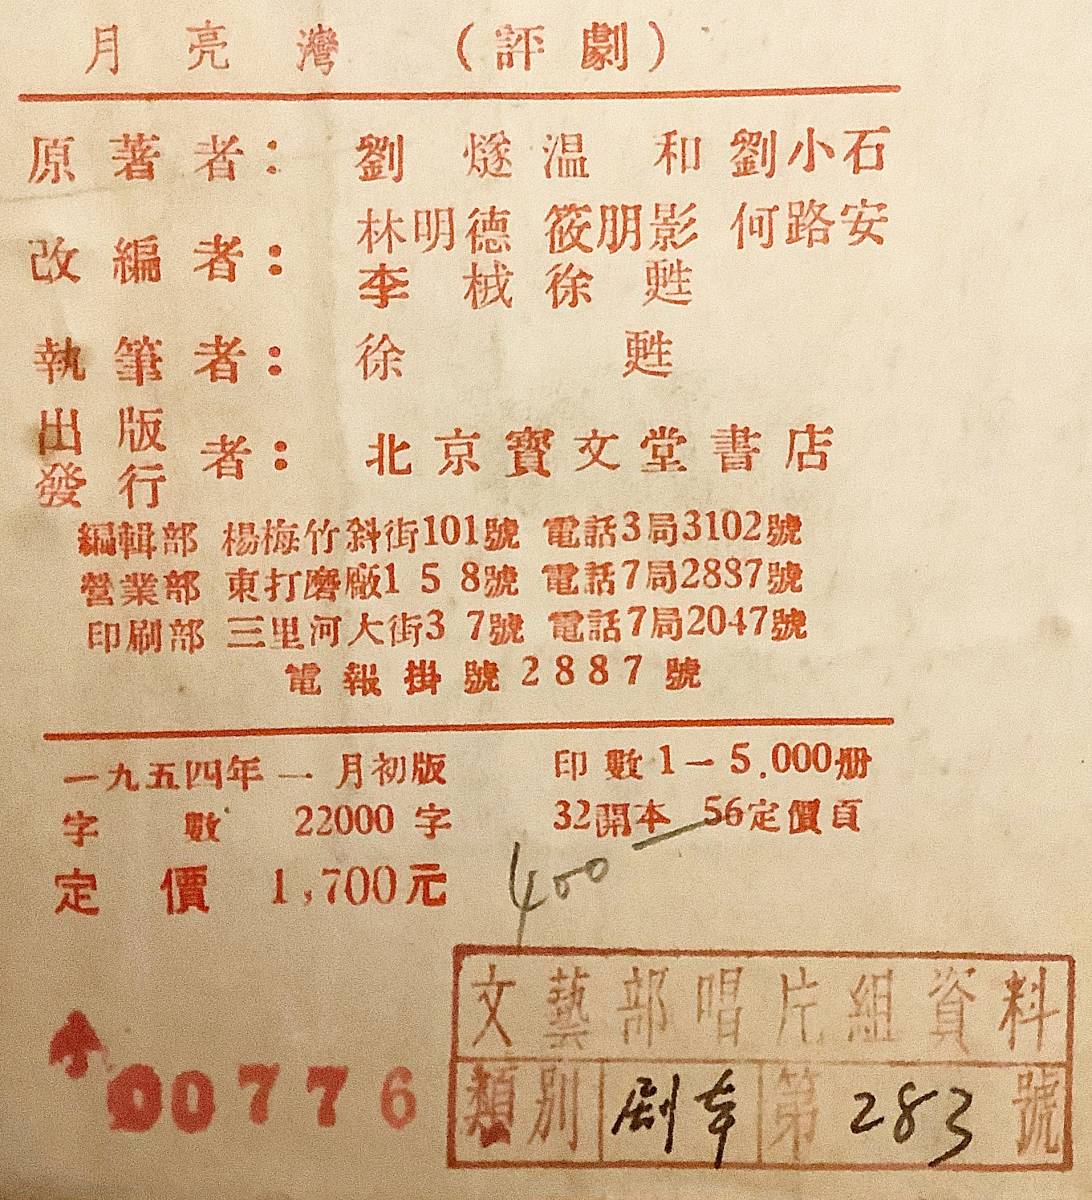 月亮灣（評劇）
原著者：劉 燧 温 和 劉小石
改編者：林明德 筱朋影 何路安
李 棫 徐 甦
執筆者：徐 甦
出版
發行
者：北京寶文堂書店
編輯部 楊梅竹斜街101號 電話3局3102號
營業部 東打磨廠158號 電話7局2887號
印刷部 三里河大街37號 電話7局2047號
電報掛號2887號
一九五四年一月初版 印數1—5.000册
字數 22000字 32開本 56定價頁
定價 1,700元
400
文藝部唱片組資料
類別 剧本 第 283 號
00776